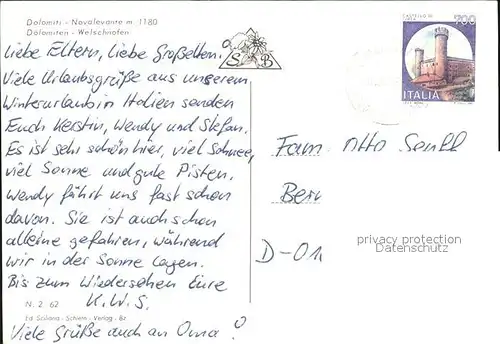 Dolomiti - Novalevante m 1180
Dolomiten - Welschnofen
Liebe Eltern, liebe Großeltern.
Viele Urlaubsgrüße aus unserem
Winterurlaub in Italien senden
Euch Kerstin, Wendy und Stefan.
Es ist sehr schön hier, viel Schnee,
viel Sonne und gute Pisten.
Wendy fährt uns fast schon
davon. Sie ist auch schon
alleine gefahren, während
wir in der Sonne lagen.
Bis zum Wiedersehen Eure
K.W.S.
N. 2. 62
Ed Sciliana - Schlern - Verlag - Bz
Viele Grüße auch an Oma!
S B
700
ITALIA
Fam. Otto
D-01
privacy protection
Datenschutz